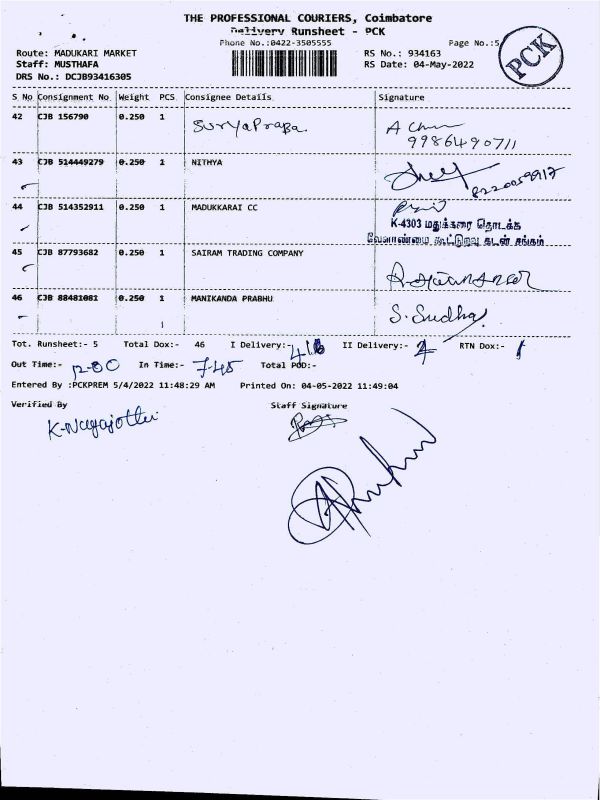 THE PROFESSIONAL COURIERS, Coimbatore
Delivery Runsheet - PCK
Phone No.:0422-3505555
Page No.:5
PCK
Route: MADUKARI MARKET
RS No.: 934163
Staff: MUSTHAFA
RS Date: 04-May-2022
DRS No.: DCJB93416305
S No Consignment No Weight PCS Consignee Details Signature
42 CJB 156790 0.250 1 SuryaPraba A
9986490711
43 CJB 514449279 0.250 1 NITHYA
8220059917
44 CJB 514352911 0.250 1 MADUKKARAI CC
K-4303 மதுக்கரை தொடக்க
வேளாண்மை கூட்டுறவு கடன் சங்கம்
45 CJB 87793682 0.250 1 SAIRAM TRADING COMPANY
46 CJB 88481081 0.250 1 MANIKANDA PRABHU S. Sudha
Tot. Runsheet:- 5 Total Dox:- 46 I Delivery:- II Delivery:- RTN Dox:-
Out Time:- 12-00 In Time:- 7-45 Total POD:-
Entered By :PCKPREM 5/4/2022 11:48:29 AM Printed On: 04-05-2022 11:49:04
Verified By Staff Signature